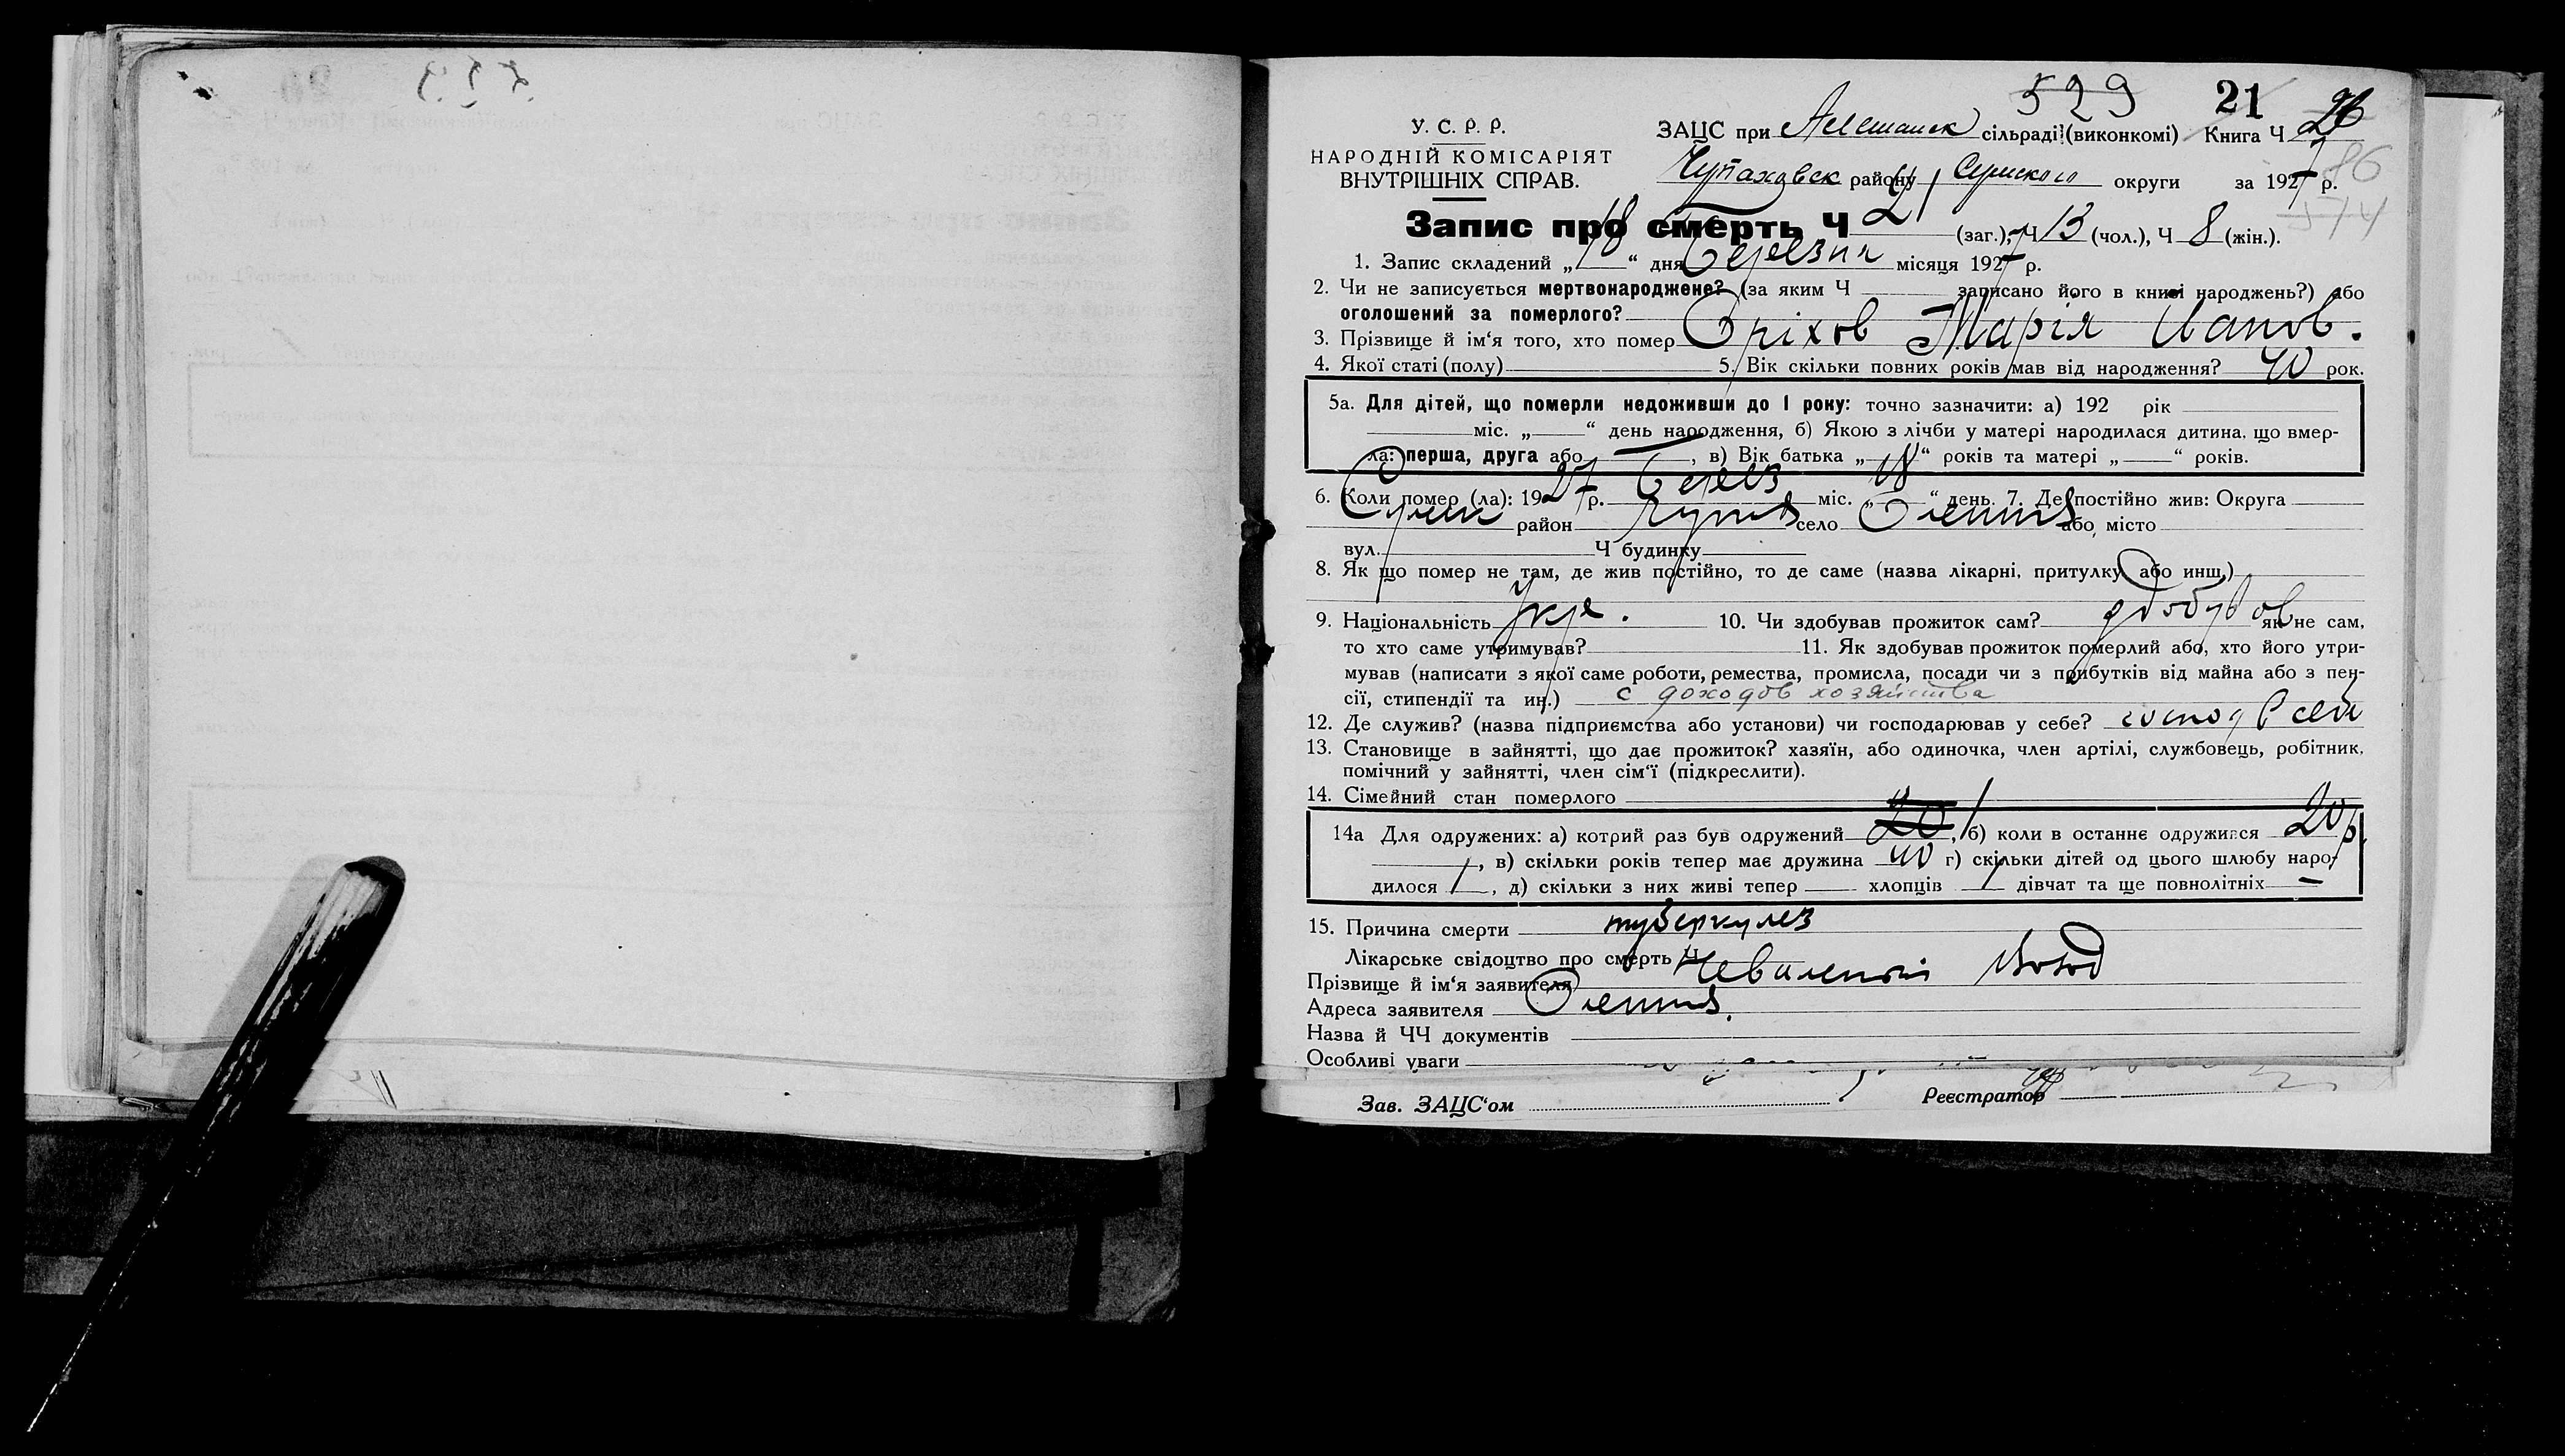 529 21 26
У. С. Р. Р. ЗАЦС при Алешанск сільраді (виконкомі) Книга Ч
НАРОДНІЙ КОМІСАРІЯТ
ВНУТРІШНІХ СПРАВ. Чупаховск району Сумского округи за 1927 р. 86
574
Запис про смерть Ч 21 (заг.), Ч 13 (чол.), Ч 8 (жін.).
1. Запис складений „18“ дня Березня місяця 1927 р.
2. Чи не записується мертвонароджене? (за яким Ч записано його в книзі народжень?) або
оголошений за померлого?
3. Прізвище й ім‘я того, хто помер Оріхов Марія Иванов.
4. Якої статі (полу) 5. Вік скільки повних років мав від народження? 40 рок.
5а. Для дітей, що померли недоживши до 1 року: точно зазначити: а) 192 рік
міс. „ “ день народження, б) Якою з лічби у матері народилася дитина, що вмер-
ла: перша, друга або —, в) Вік батька „ “ років та матері „ “ років.
6. Коли помер (ла): 1927 р. Берез міс. „18“ день. 7. Де постійно жив: Округа
Сумск район Чупах село або місто
вул. Ч будинку
8. Як що помер не там, де жив постійно, то де саме (назва лікарні, притулку або инш.)
9. Національність укр. 10. Чи здобував прожиток сам? здобував як не сам,
то хто саме утримував? 11. Як здобував прожиток померлий або, хто його утри-
мував (написати з якої саме роботи, ремества, промисла, посади чи з прибутків від майна або з пен-
сії, стипендії та ин.) с доходов хозяйства
12. Де служив? (назва підприємства або установи) чи господарював у себе? господ в себя
13. Становище в зайнятті, що дає прожиток? хазяїн, або одиночка, член артілі, службовець, робітник,
помічний у зайнятті, член сім‘ї (підкреслити).
14. Сімейний стан померлого
14а Для одружених: а) котрий раз був одружений 20 1, б) коли в останнє одружився 20 р.
, в) скільки років тепер має дружина 40 г) скільки дітей од цього шлюбу наро-
дилося 1, д) скільки з них живі тепер хлопців 1 дівчат та ще повнолітніх —
15. Причина смерти туберкулез
Лікарське свідоцтво про смерть Ч
Прізвище й ім‘я заявителя
Адреса заявителя
Назва й ЧЧ документів
Особливі уваги
Зав. ЗАЦС‘ом Реєстратор